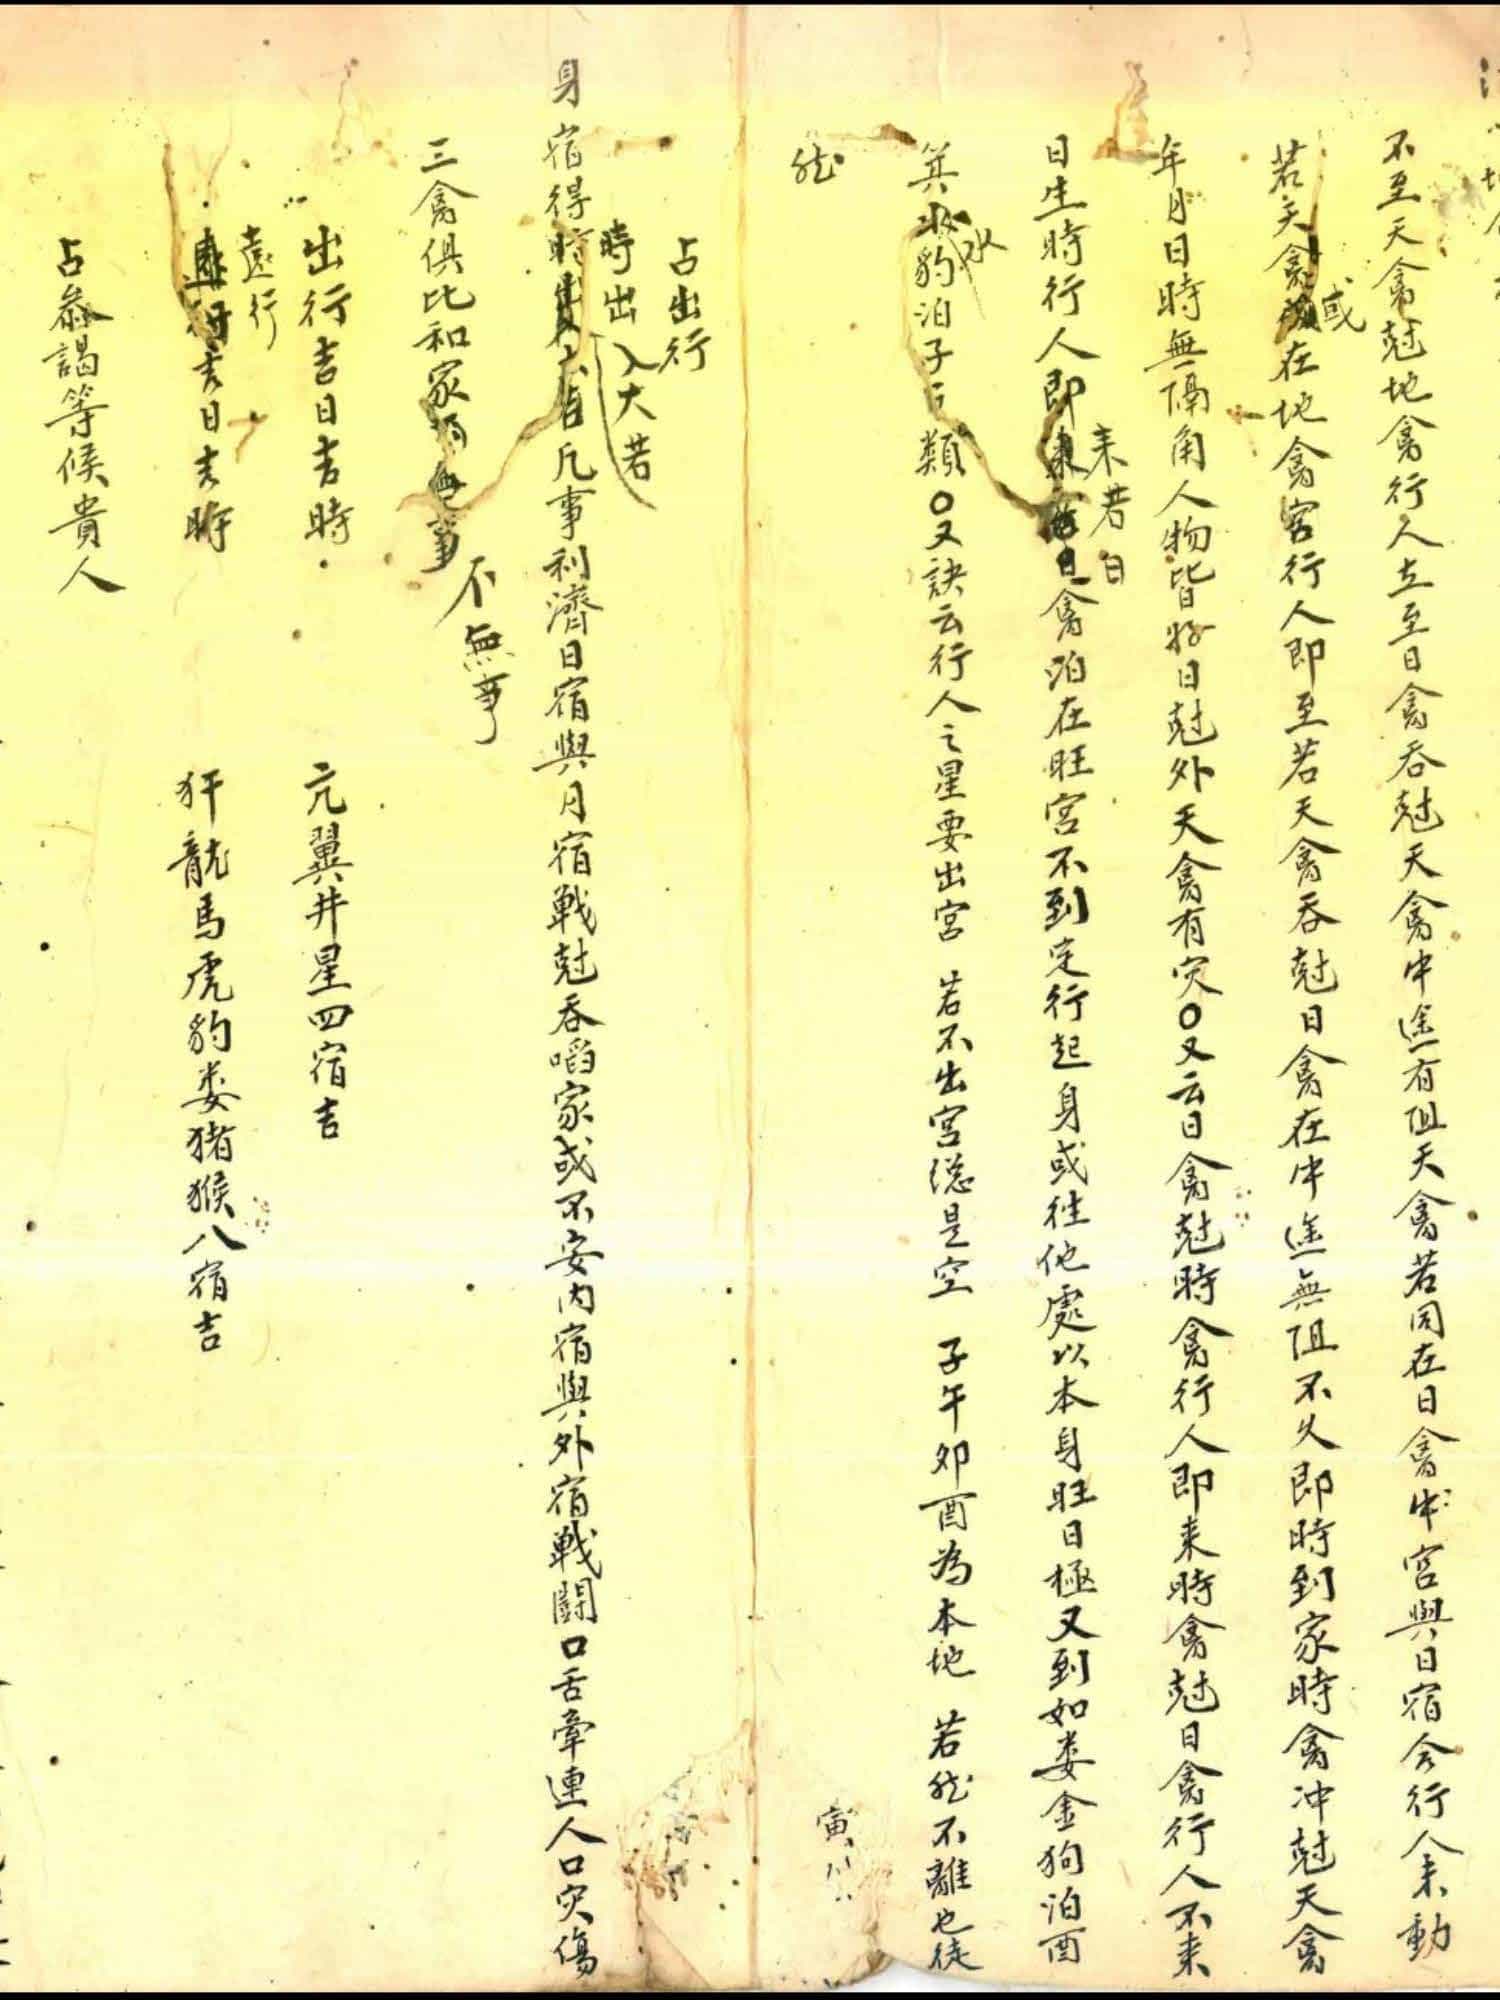 不至天禽尅地禽行人立至日禽吞尅天禽中途有阻天禽若同在日禽中宮與日宿合行人未動
若天禽或在地禽宮行人即至若天禽吞尅日禽在中途無阻不久即時到家時禽冲尅天禽
年月日時無隔角人物皆好日尅外天禽有灾〇又云日禽尅時禽行人即来時禽尅日禽行人不来
日生時行人即来若日禽泊在旺宮不到定行起身或往他處以本身旺日極又到如娄金狗泊酉
箕水豹泊子 類〇又訣云行人之星要出宮 若不出宮縂是空 子午夘酉為本地 若然不離也徒
然
寅
占出行
時出入大若
身宿得時 凡事利濟日宿與月宿戰尅吞啗家或不安内宿與外宿戰鬪口舌牽連人口灾傷
三禽俱比和家 不無事
出行吉日吉時 亢翼井星四宿吉
遠行吉日吉時 犴龍馬虎豹娄猪猴八宿吉
占叅謁等候貴人